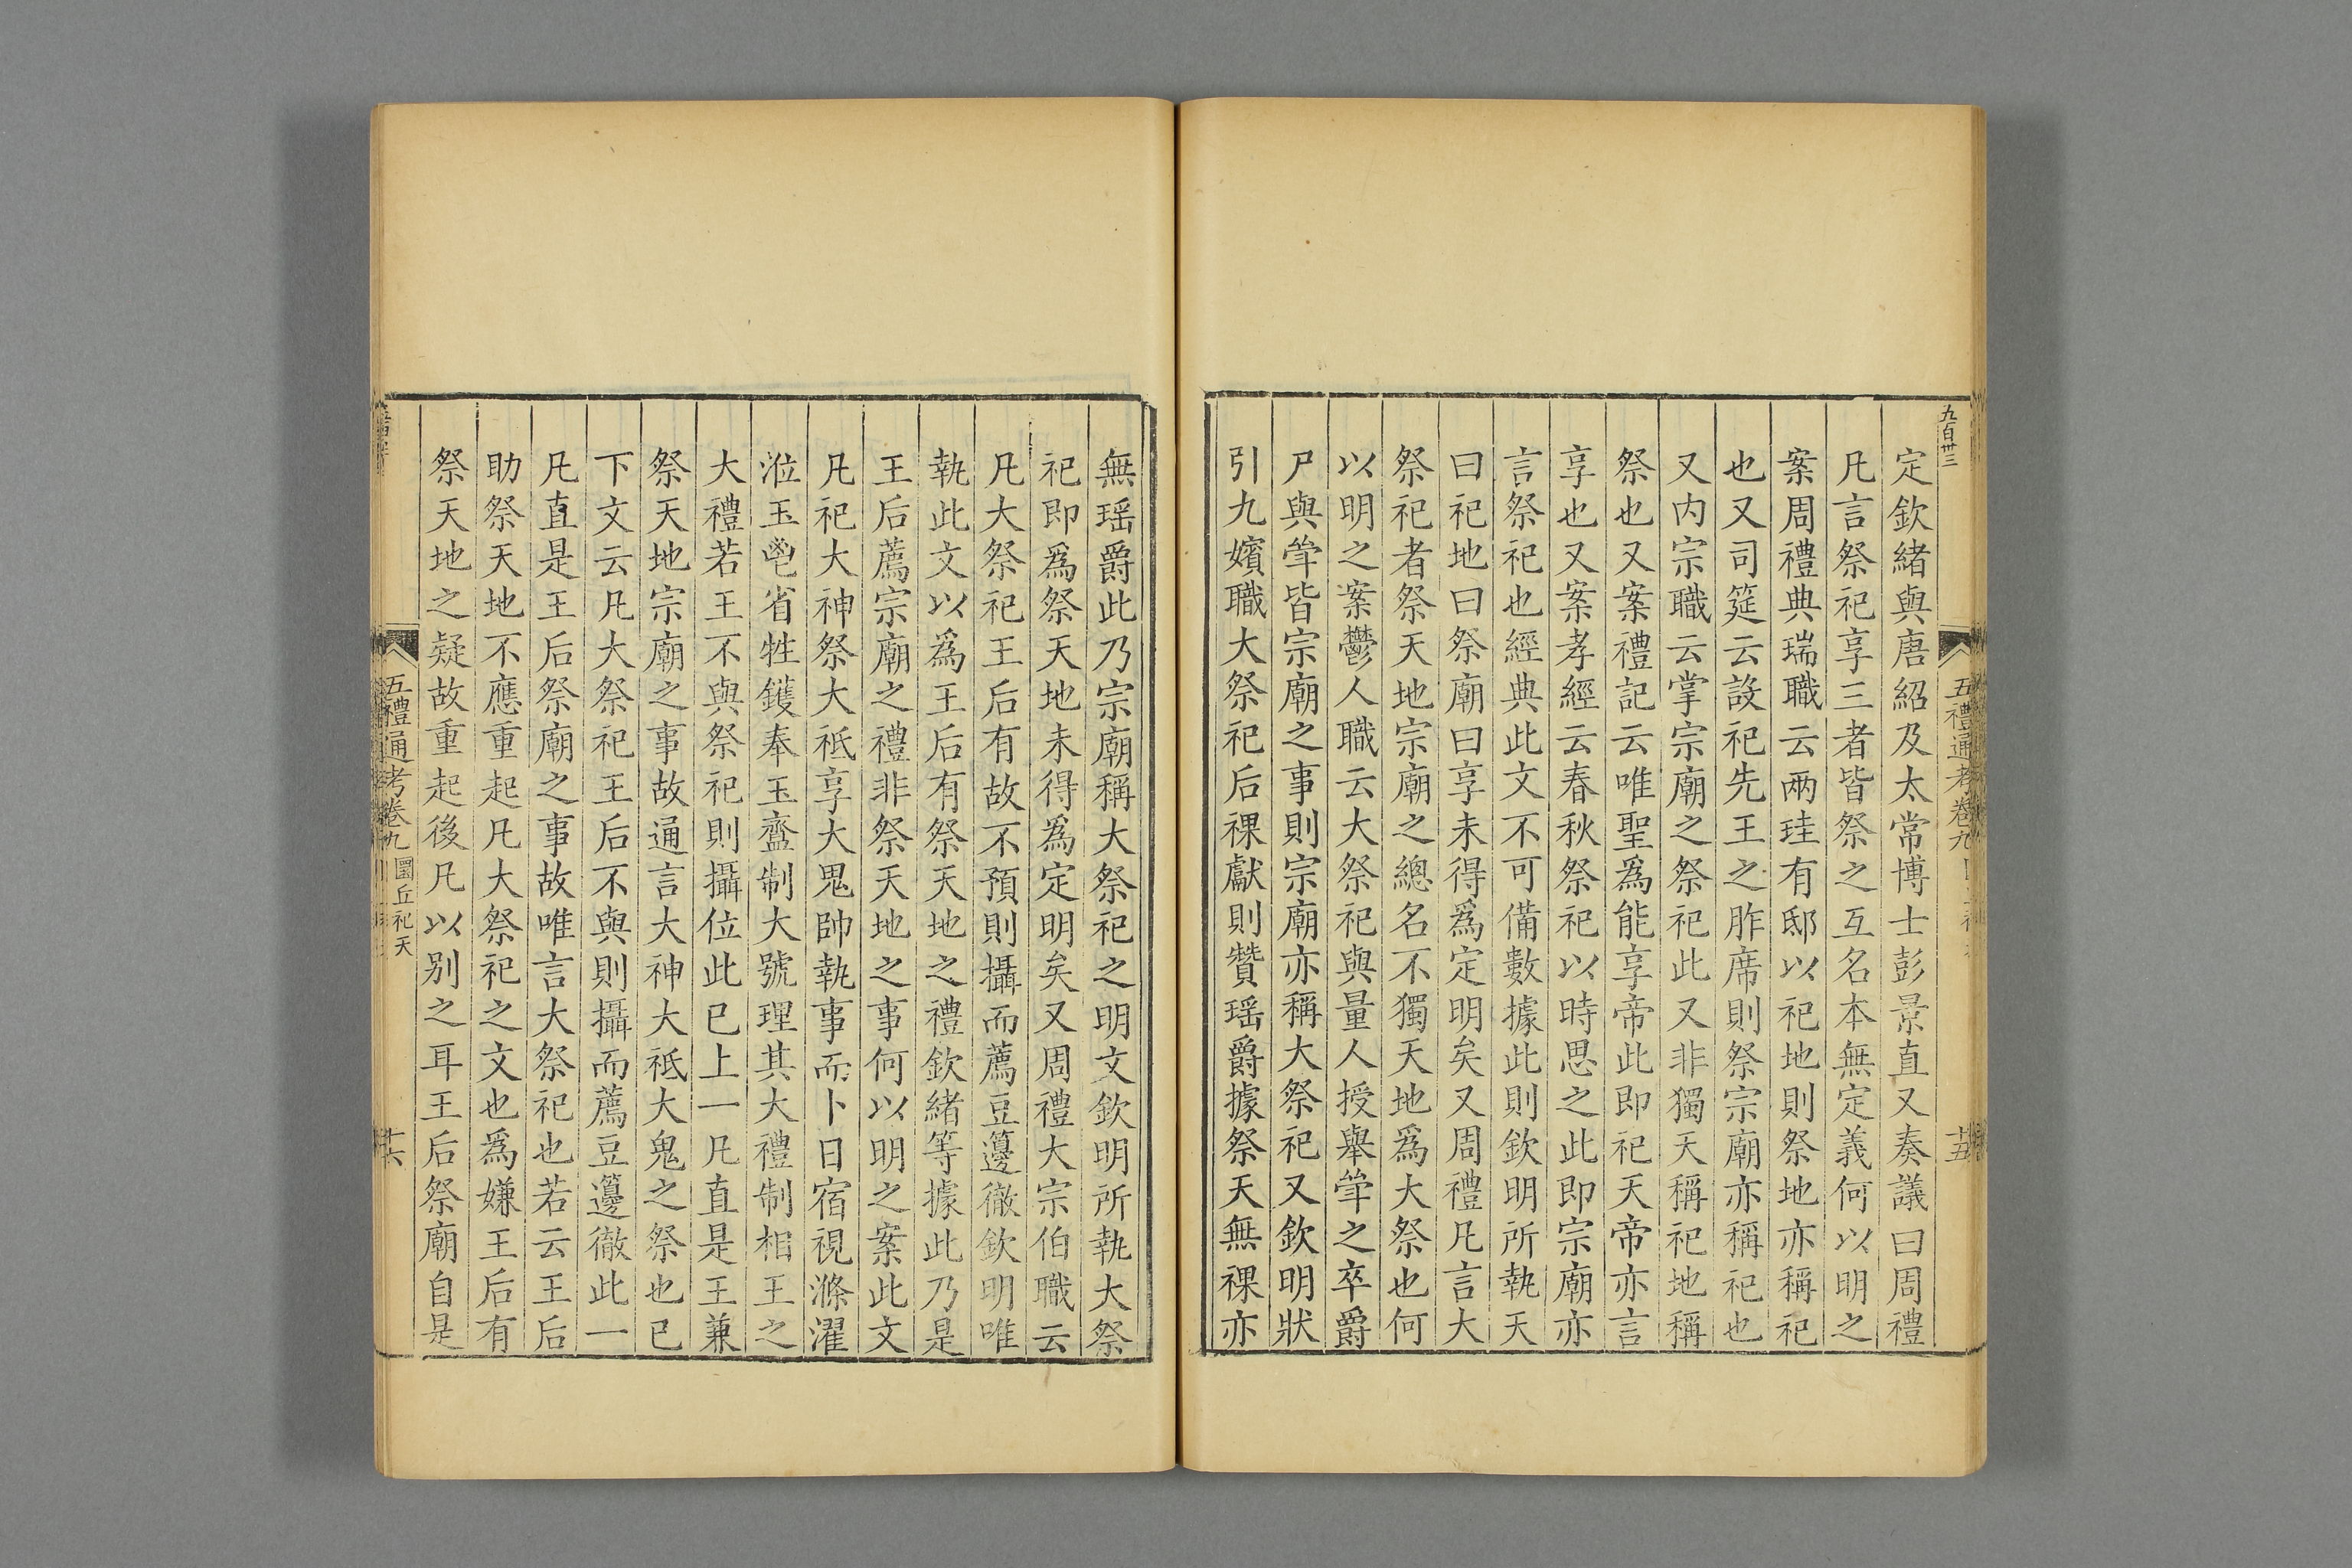 九百卅三
五禮通考卷九
十五
定欽緒與唐紹及太常博士彭景直又奏議曰周禮
凡言祭祀享三者皆祭之互名本無定義何以明之
案周禮典瑞職云兩珪有邸以祀地則祭地亦稱祀
也又司筵云設祀先王之胙席則祭宗廟亦稱祀也
又内宗職云掌宗廟之祭祀此又非獨天稱祀地稱
祭也又案禮記云唯聖爲能享帝此即祀天帝亦言
享也又案孝經云春秋祭祀以時思之此即宗廟亦
言祭祀也經典此文不可備數據此則欽明所執天
曰祀地曰祭廟曰享未得爲定明矣又周禮凡言大
祭祀者祭天地宗廟之總名不獨天地爲大祭也何
以明之案鬱人職云大祭祀與量人授舉斝之卒爵
尸與斝皆宗廟之事則宗廟亦稱大祭祀又欽明狀
引九嬪職大祭祀后祼獻則贊瑶爵據祭天無祼亦
無瑶爵此乃宗廟稱大祭祀之明文欽明所執大祭
祀即爲祭天地未得爲定明矣又周禮大宗伯職云
凡大祭祀王后有故不預則攝而薦豆籩徹欽明唯
執此文以爲王后有祭天地之禮欽緒等據此乃是
王后薦宗廟之禮非祭天地之事何以明之案此文
凡祀大神祭大祗享大鬼帥執事而卜日宿視滌濯
涖玉鬯省牲鑊奉玉齍制大號理其大禮制相王之
大禮若王不與祭祀則攝位此已上一凡直是王兼
祭天地宗廟之事故通言大神大祗大鬼之祭也已
下文云凡大祭祀王后不與則攝而薦豆籩徹此一
凡直是王后祭廟之事故唯言大祭祀也若云王后
助祭天地不應重起凡大祭祀之文也爲嫌王后有
祭天地之疑故重起後凡以别之耳王后祭廟自是
五禮通考卷九 圜丘祀天
十六